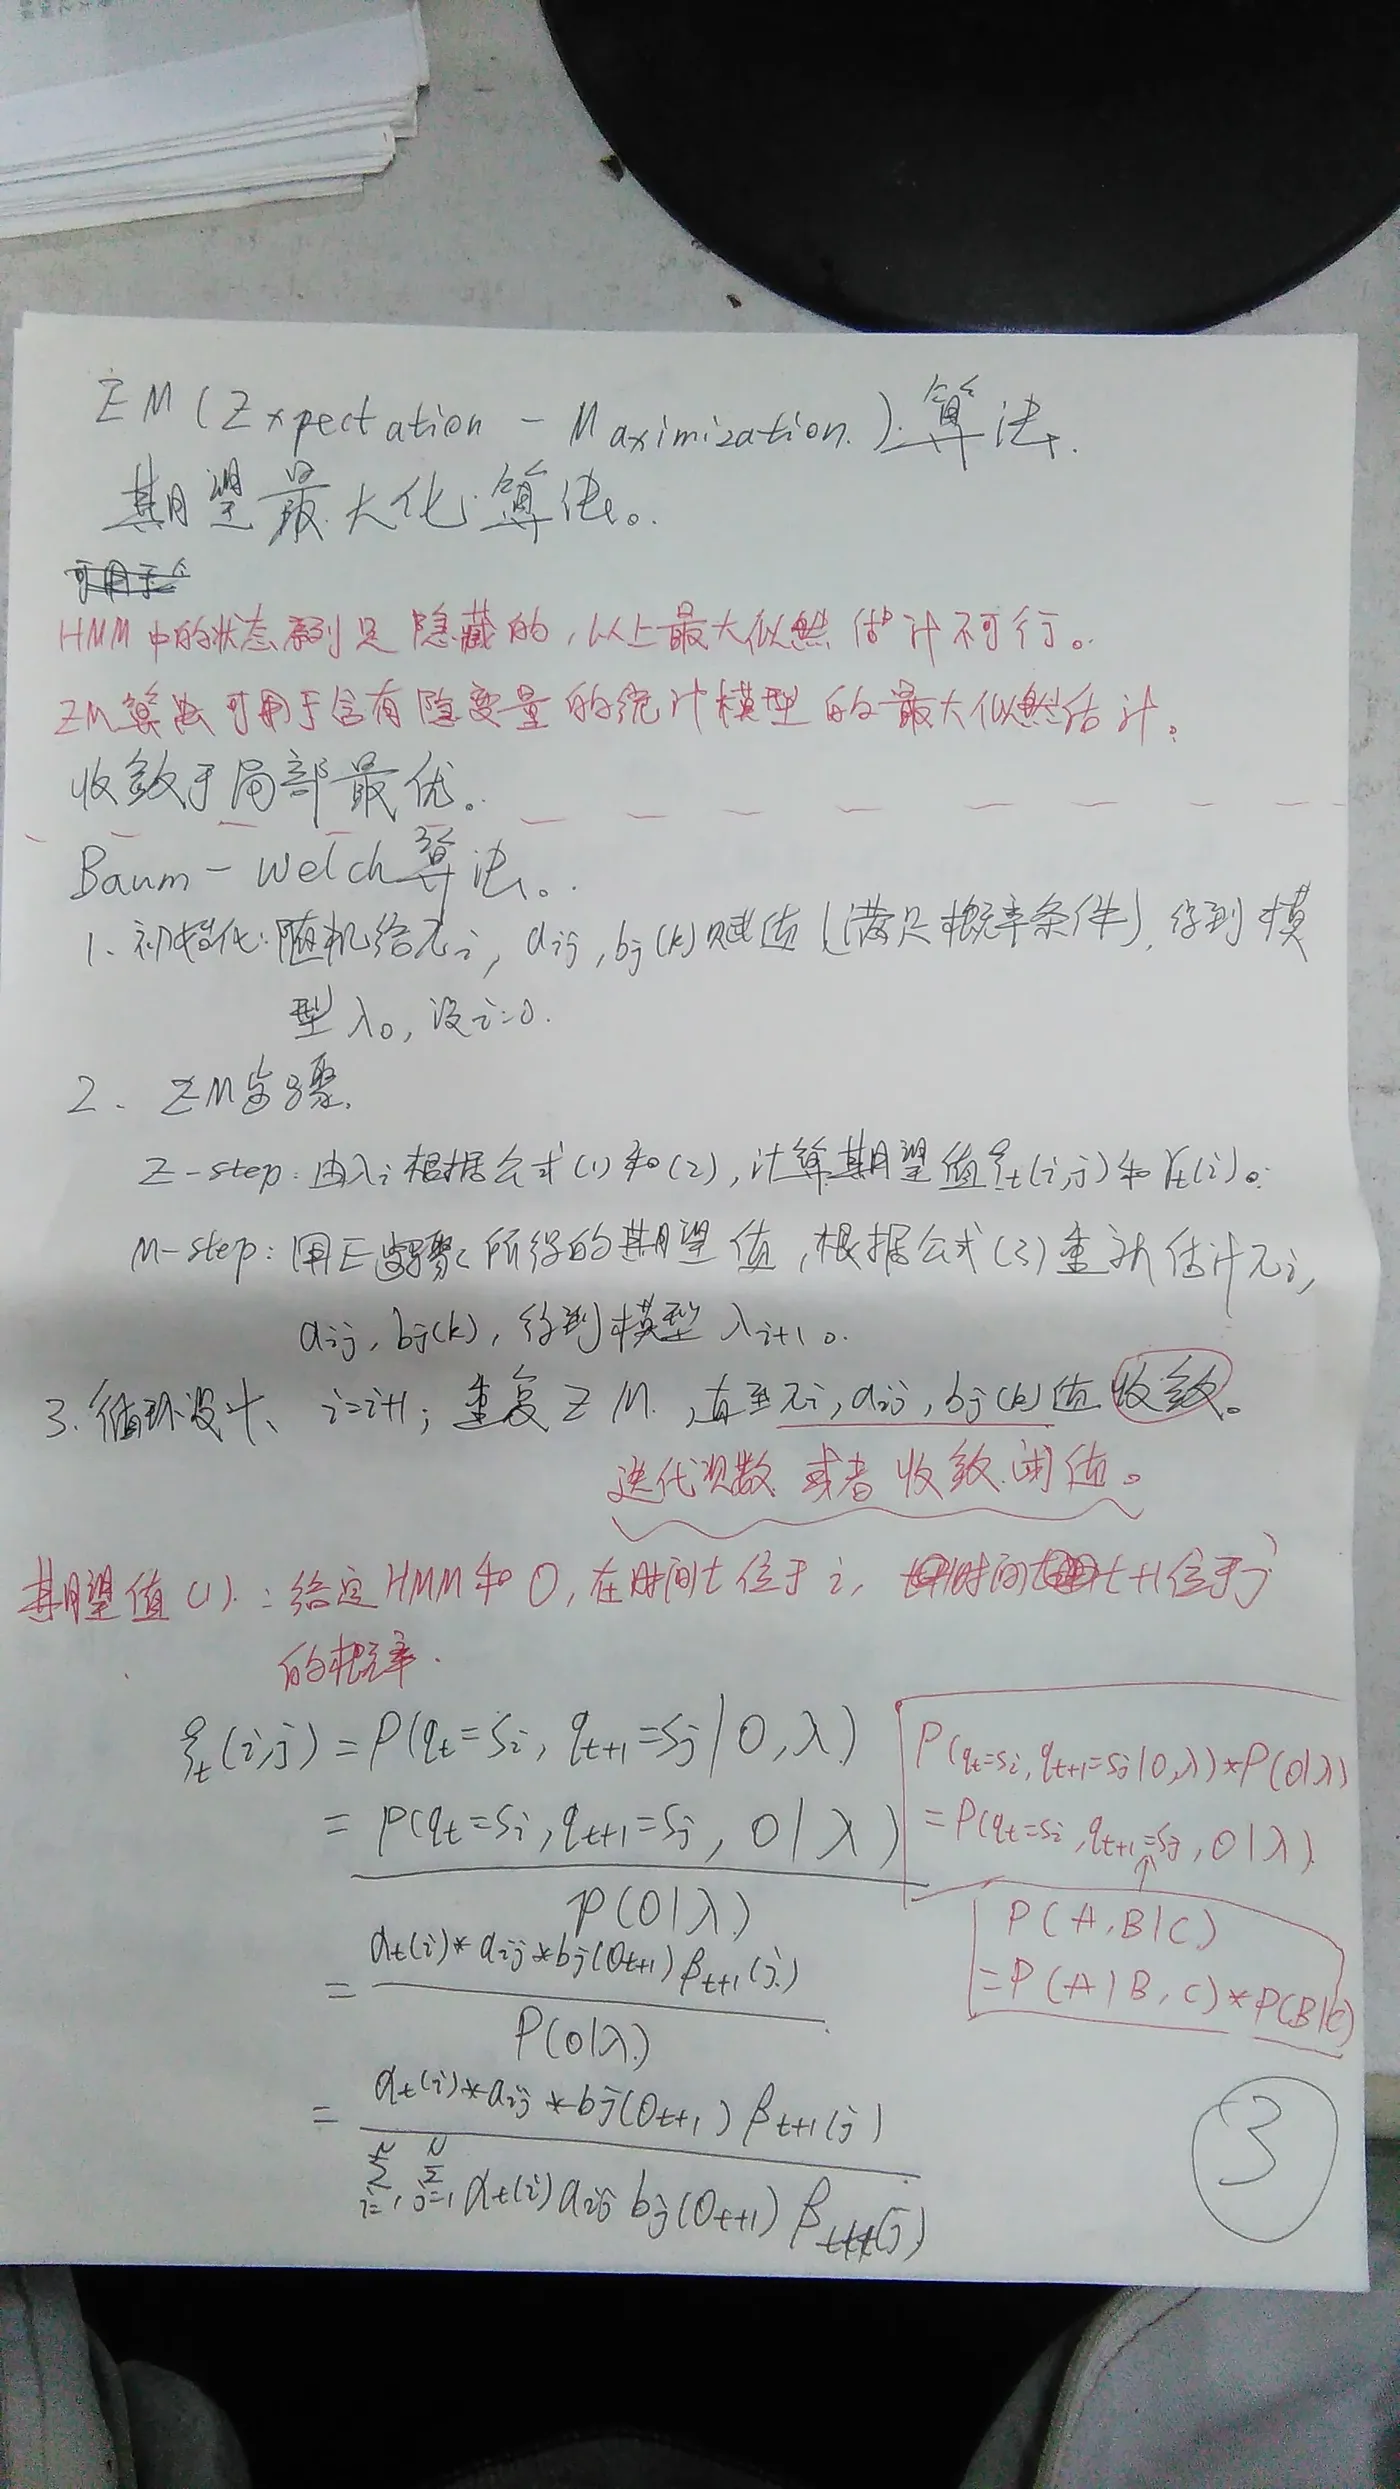 EM(Expectation-Maximization.)算法.
期望最大化算法。
可用于
HMM中的状态序列是隐藏的,以上最大似然估计不可行。
EM算法可用于含有隐变量的统计模型的最大似然估计。
收敛于局部最优。
Baum-Welch算法。
1、初始化:随机给πi, aij, bj(k)赋值(满足概率条件),得到模
型λ0,设i=0.
2、EM步骤.
E-step:由λi根据公式(1)和(2),计算期望值ξt(i,j)和γt(i)。
M-step:用E步骤所得的期望值,根据公式(3)重新估计πi,
aij, bj(k),得到模型λi+1。
3.循环设计、i=i+1;重复EM.,直至πi, aij, bj(k)值收敛。
迭代次数或者收敛阈值。
期望值(1).:给定HMM和O,在时间t位于i, 时间t+1位于j
的概率.
ξt(i,j)=P(qt=si, qt+1=sj|O,λ)
=P(qt=si, qt+1=sj, O|λ)
P(O|λ)
=αt(i)*aij*bj(Ot+1)βt+1(j)
P(O|λ)
=αt(i)*aij*bj(Ot+1)βt+1(j)
N∑i=1 N∑j=1 αt(i)aij bj(Ot+1)βt+1(j)
P(qt=si, qt+1=sj|O,λ)*P(O|λ)
=P(qt=si, qt+1=sj, O|λ).
↑
P(A,B|C)
=P(A|B,C)*P(B|C)
3